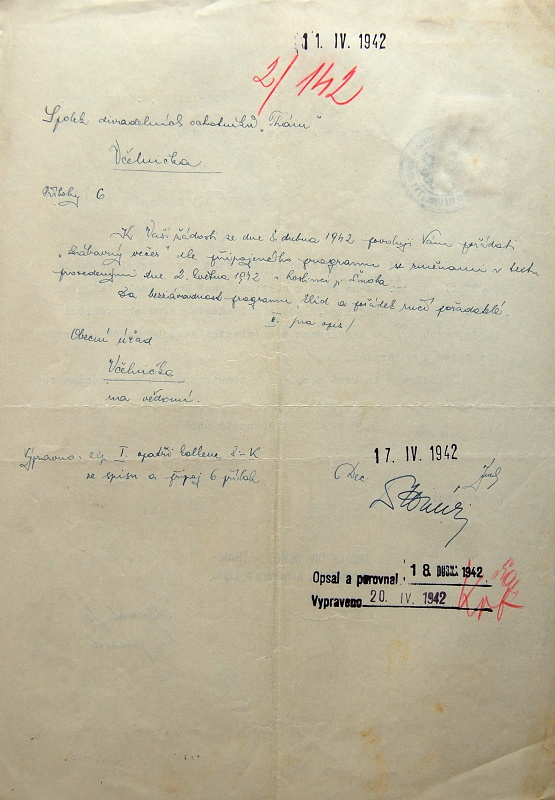 11. IV. 1942
2/142
Spolek divadelních ochotníků „Thám"
Včelnička.
Přílohy: 6
K Vaší žádosti ze dne 8. dubna 1942 povoluji Vám pořádati
„Zábavný večer" dle připojeného programu se změnami v textu
provedenými dne 2. května 1942 v hostinci p. Šimota.
Za bezzávadnost programu, klid a pořádek ručí pořadatelé.
II. pro spis/
Obecní úřad
Včelnička
na vědomí.
Výpravna: I. opatři
se spisu a připoj 6 příloh
17. IV. 1942
Opsal a porovnal: 18. DUBNA 1942
Vypraveno 20. IV. 1942